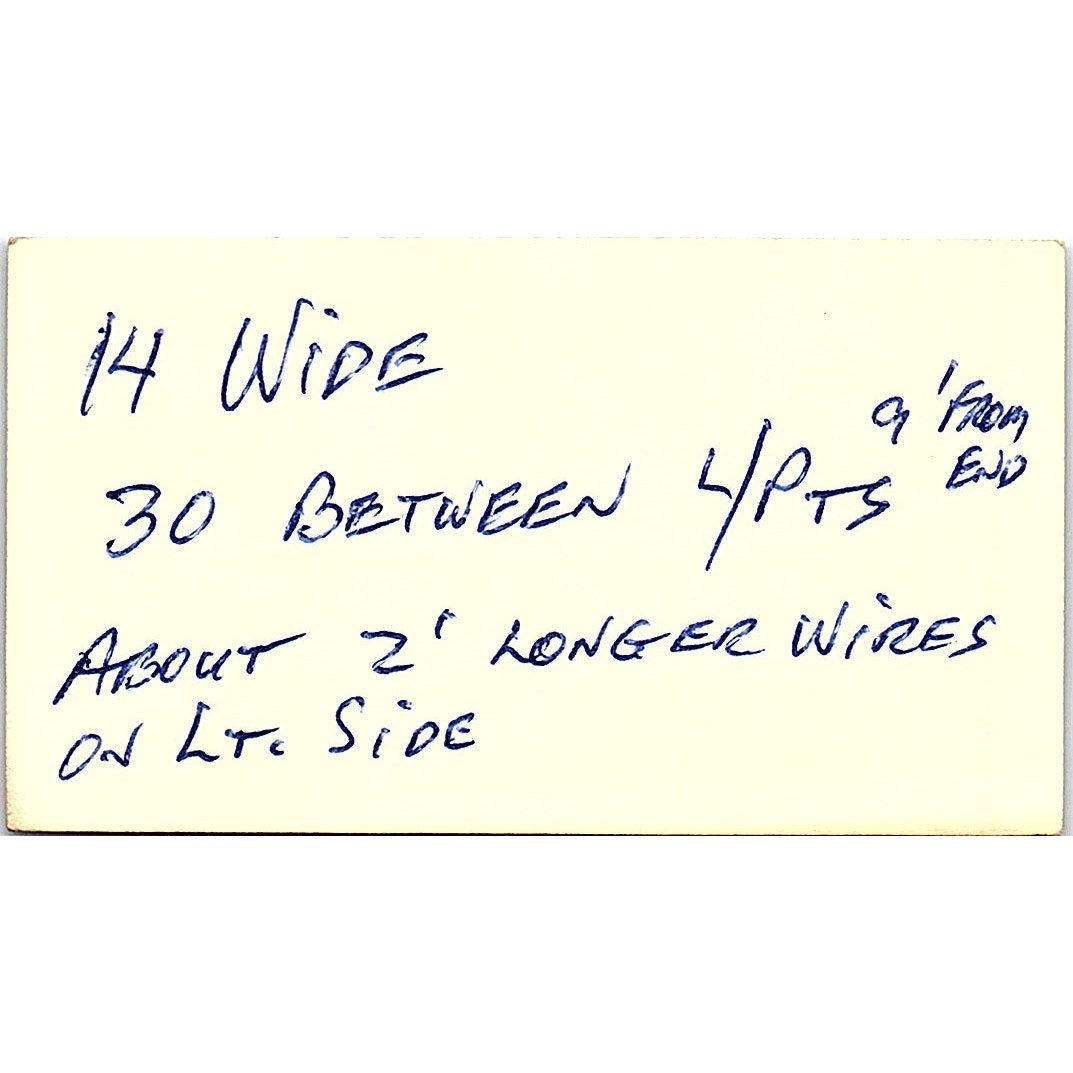 14 WIDE
30 BETWEEN L/PTS 9' FROM
END
ABOUT 2' LONGER WIRES
ON LT. SIDE